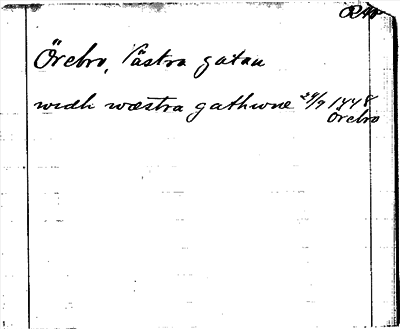 Örebro, Västra gatan
widh wæstra gathwne 29/9 1448
Örebro